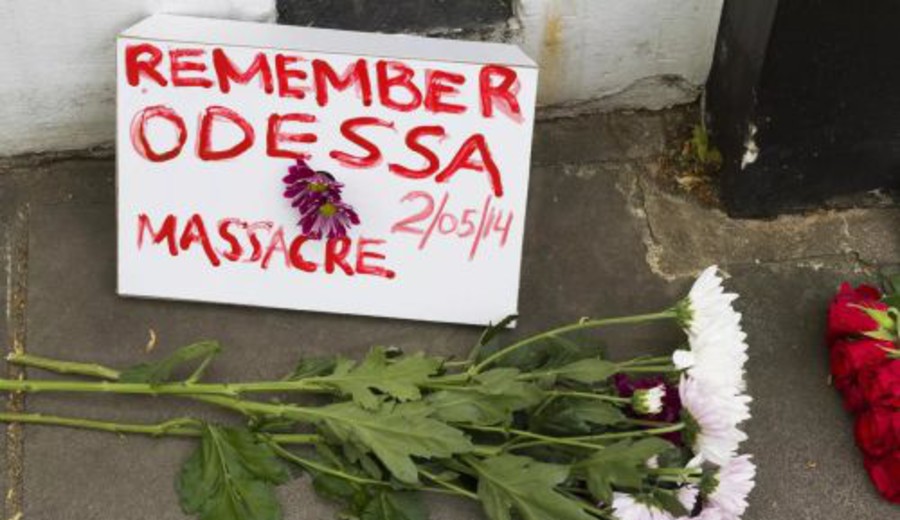 REMEMBER
ODESSA
2/05/14
MASSACRE.